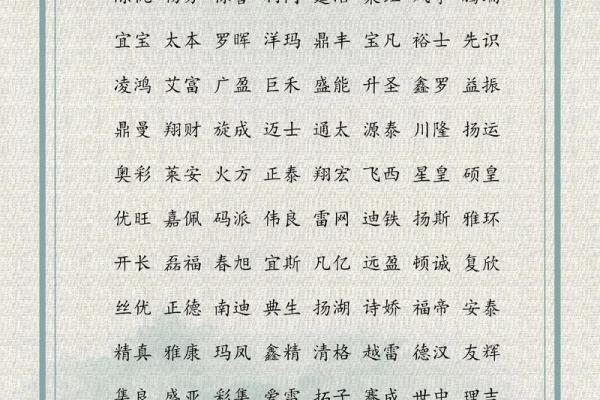 宜宝 太本 罗晖 洋玛 鼎丰 宝凡 裕士 先识
凌鸿 艾富 广盈 巨禾 盛能 升圣 鑫罗 益振
鼎曼 翔财 旋成 迈士 通太 源泰 川隆 扬运
奥彩 莱安 火方 正泰 翔宏 飞西 星皇 硕皇
优旺 嘉佩 码派 伟良 雷网 迪铁 扬斯 雅环
开长 磊福 春旭 宜斯 凡亿 远盈 顿诚 复欣
丝优 正德 南迪 典生 扬湖 诗娇 福帝 安泰
精真 雅康 玛凤 鑫精 清格 越雷 德汉 友辉
集良 盛亚 彩集 爱雷 拓子 赛成 世中 理吉